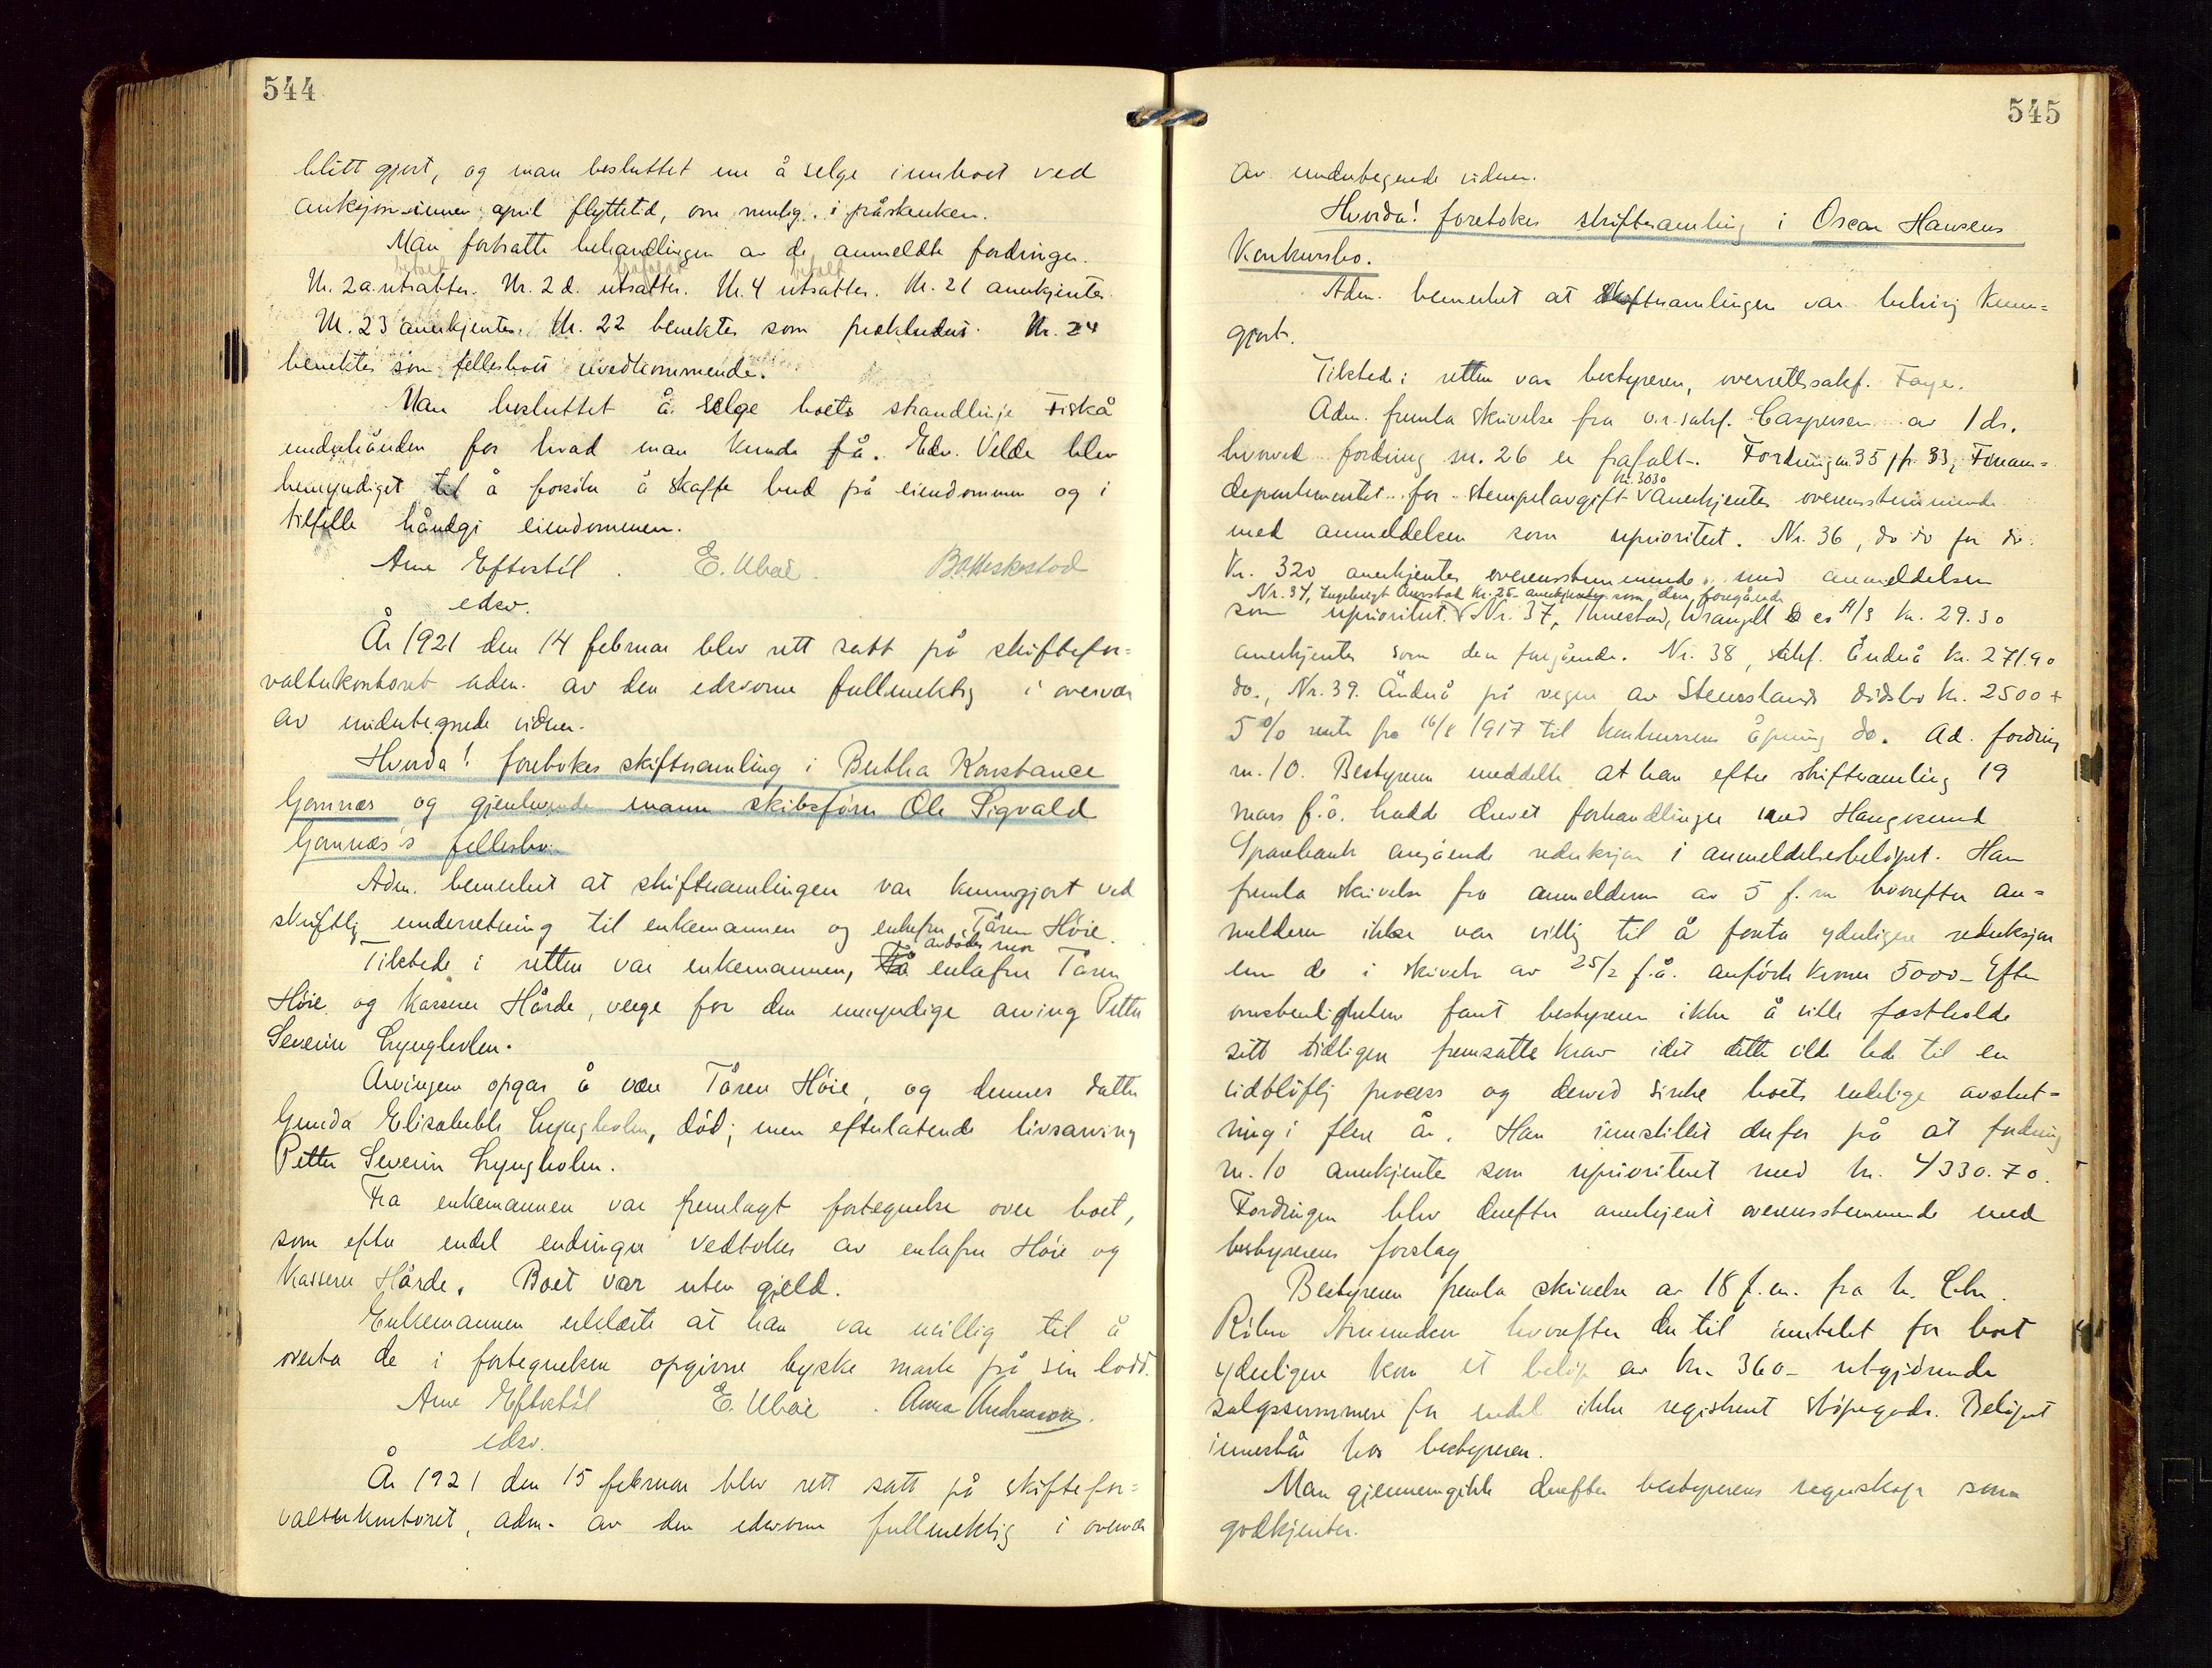 544
blitt gjort, og man besluttet nu å selge innboet ved
auksjon innen april flyttetid, om mulig, i påsken.
Man fortsatte behandlingen av de anmeldte fordringer.
betalt frafaldt betalt
Nr. 2a. utsattes. Nr. 2d. utsattes. Nr. 4 utsattes. Nr. 21 anerkjentes.
Nr. 23 anerkjentes. Nr. 22 benektes som prekludert. Nr. 24
benektes som fellesboet uvedkommende.
Man besluttet å selge boets strandlinje Fiskå
underhånden for hvad man kunde få. Edv. Velde blev
bemyndiget til å forsøke å skaffe bud på eiendommen og i
tilfelle håndgi eiendommen.
Arne Eftestøl. E. Ubøe.
edsv.
År 1921 den 14 februar blev rett satt på skiftefor=
valterkontoret adm. av den edsvorne fullmektig i overvær
av undertegnede vidner.
Hvorda! foretokes skiftesamling i Bertha Konstance
Gomnæs og gjenlevende mann skibsfører Ole Sigvald
Gomnæs's fellesbo.
Adm. bemerket at skiftesamlingen var kunngjort ved
skriftlig underretning til enkemannen og enkefru Tåren Høie.
avdødes mor
Tilstede i retten var enkemannen, enkefru Tåren
Høie og kasserer Hårde, verge for den umyndige arving Petter
Severin Lyngholm.
Arvingene opgas å være Tåren Høie, og dennes datter
Gunda Elisabeth Lyngholm, død; men efterlatende livsarving
Petter Severin Lyngholm.
Fra enkemannen var fremlagt fortegnelse over boet,
som efter endel endringer vedtokes av enkefru Høie og
kasserer Hårde. Boet var uten gjeld.
Enkemannen erklærte at han var uvillig til å
overta de i fortegnelsen opgivne tyske mark på sin lodd.
Arne Eftestøl E. Ubøe. Anna Andreassen.
edsv.
År 1921 den 15 februar blev rett satt på skiftefor=
valterkontoret, adm. av den edsvorne fullmektig i overvær
545
av undertegnede vidner.
Hvorda! foretokes skiftesamling i Oscar Hansens
Konkursbo.
Adm. bemerket at skiftesamlingen var behørig kunn=
gjort.
Tilstede i retten var bestyreren, overrettssakf. Faye.
Adm. fremla skrivelse fra o.r.sakf. Caspersen av 1 ds.
hvorved fordring nr. 26 er frafalt. Fordringen 35 jfr. 33, Finans=
kr. 3030
departementet for stempelavgift anerkjentes overensstemmende
med anmeldelsen som uprioritert. Nr. 36, do do for do.
Kr. 320 anerkjentes overensstemmende med anmeldelsen
Nr. 34, Ingebrigt Aurstad kr. 25- anerkjentes som den foregående
som uprioritert. Nr. 37, Wrangell & co A/S kr. 29.30
anerkjentes som den foregående. Nr. 38, sakf. Åndnå kr. 271.90
do., Nr. 39. Åndnå på vegne av Stenslands dødsbo kr. 2500 +
5 % rente fra 16/8 1917 til konkursens åpning do. Ad. fordring
nr. 10. Bestyreren meddelte at han efter skiftesamling 19
mars f.å. hadde drevet forhandlinger med Haugesund
Sparebank angående reduksjon i anmeldelsesbeløpet. Han
fremla skrivelse fra anmelderen av 5 f.m. hvorefter an=
melderen ikke var villig til å foreta yderligere reduksjon
enn de i skrivelse av 25/2 f.å. anførte kroner 5000- Efter
omstendighetene fant bestyreren ikke å ville fastholde
sitt tidligere fremsatte krav idet dette vilde lede til en
vidtløftig process og derved sinke boets endelige avslut=
ning i flere år. Han innstillet derfor på at fordring
nr. 10 anerkjentes som uprioritert med kr. 4330.70.
Fordringen blev derefter anerkjent overensstemmende med
bestyrerens forslag
Bestyreren fremla skrivelse av 18 f.m. fra h. Chr.
hvorefter der til inntekt for boet
yderligere kom et beløp av kr. 360- utgjørende
salgssummene for endel ikke registrert støpegods. Beløpet
innestår hos bestyreren.
Man gjennemgikk derefter bestyrerens regnskap som
godkjentes.